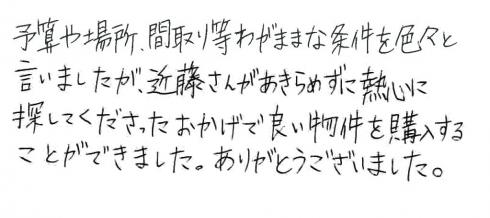 予算や場所、間取り等わがままな条件を色々と
言いましたが、近藤さんがあきらめずに熱心に
探してくださったおかげで良い物件を購入する
ことができました。ありがとうございました。